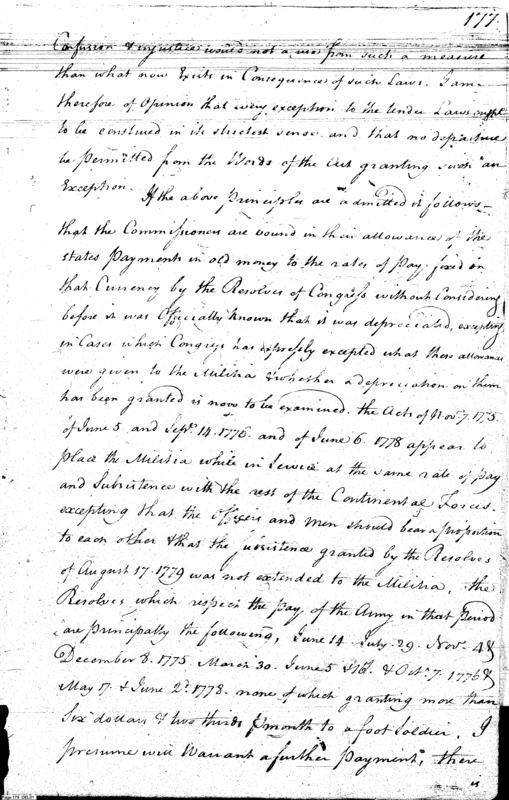 177.
Confusion & injustice would not arise from such a measure
than what now Exists in Consequence of such Laws. I am
therefore of Opinion that every exception to the tender Laws ought
to be construed in its strictest sense and that no departure
be permitted from the Words of the Act granting such an
Exception.
If the above principles are admitted it follows
that the Commissioners are bound in their allowance of the
states Payments in old money to the rates of Pay fixed in
that Currency by the Resolves of Congress without Considering
before it was Officially known that it was depreciated, excepting
in Cases which Congress has expressly excepted what these allowances
were given to the Militia & whether a depreciation on them
has been granted is now to be examined. the Acts of Nov. 7. 1775
of June 5 and Sept. 14. 1776. and of June 6. 1778 appear to
place the Militia while in Service at the same rate of pay
and Subsistence with the rest of the Continental Forces.
excepting that the Officers and Men should bear a proportion
to each other & that the subsistence granted by the Resolves
of August 17. 1779 was not extended to the Militia, the
Resolves which respect the pay of the Army in that Period
are principally the following, June 14 July 29. Nov. 4 &
December 8. 1775. March 30. June 5 & & Octr. 7. 1776 &
May 17. & June 2d. 1778. none of which granting more than
Six dollars & two thirds month to a foot Soldier, I
presume will Warrant a further Payment, there
is
Page 179